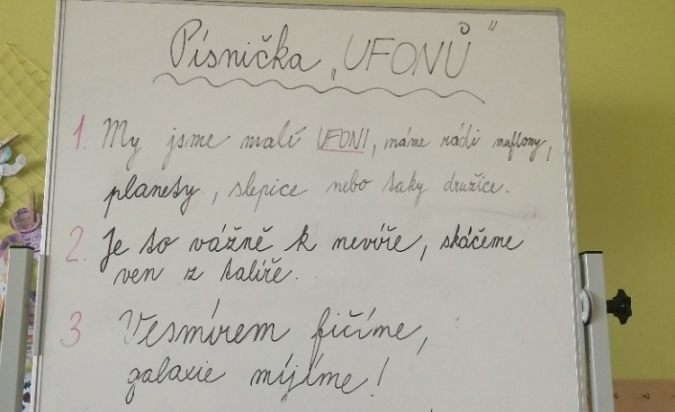 Písnička „UFONŮ"
1. My jsme malí UFONI, máme rádi muflony,
planety, slepice nebo taky družice.
2. Je to vážně k nevíře, skáčeme
ven z talíře.
3 Vesmírem fičíme,
galaxie míjíme!